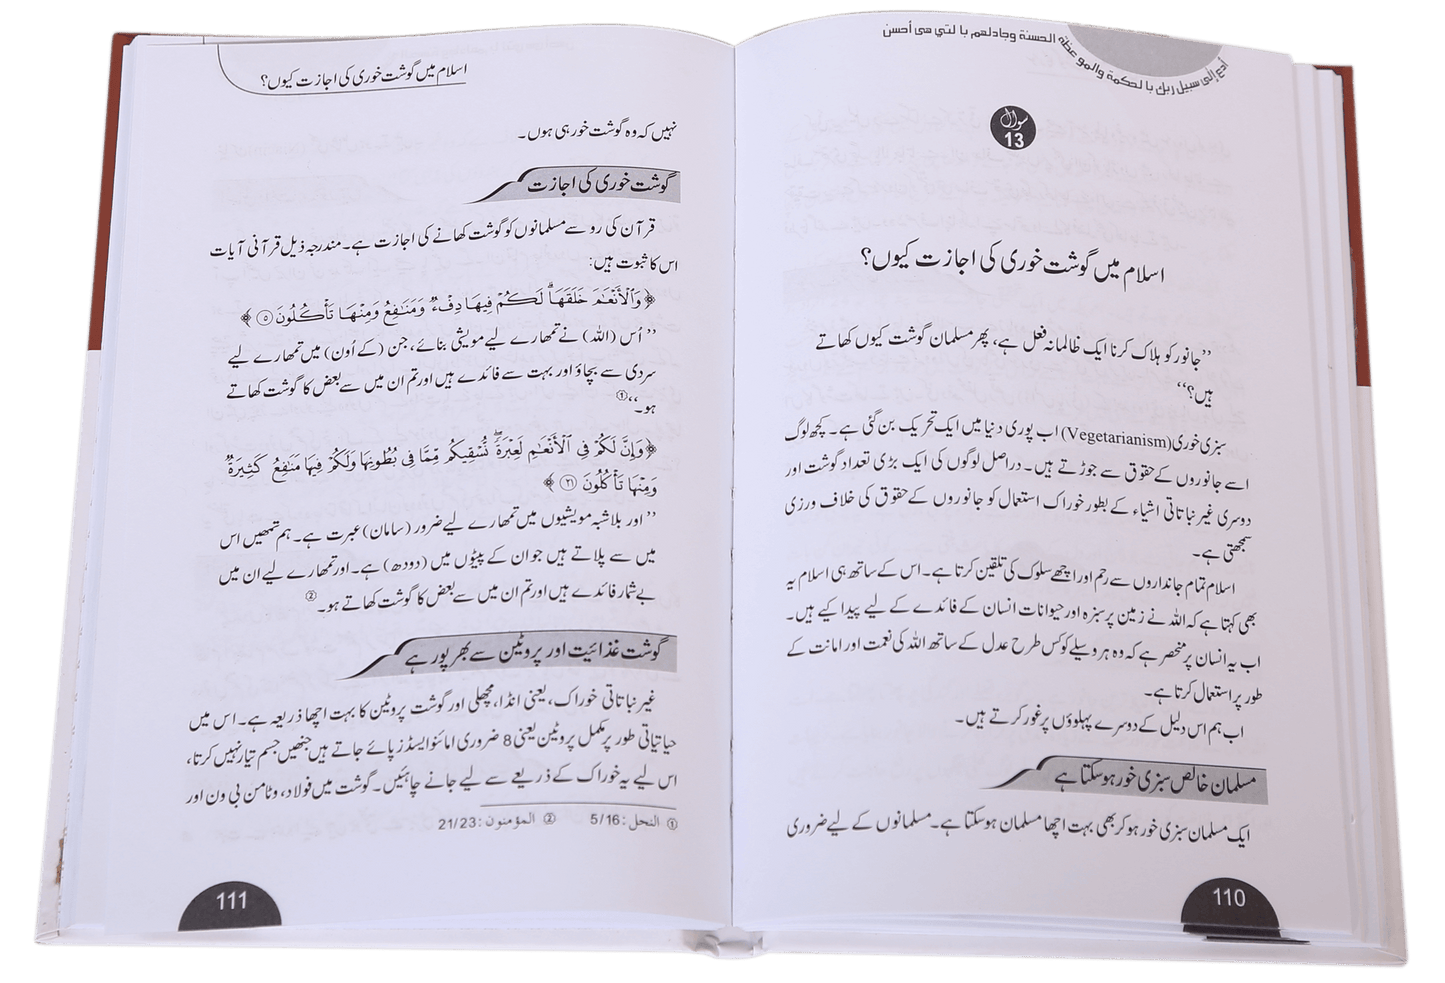 أدع إلى سبيل ربك بالحكمة والموعظة الحسنة وجادلهم بالتي هي أحسن
سوال
13
اسلام میں گوشت خوری کی اجازت کیوں؟
’’جانور کو ہلاک کرنا ایک ظالمانہ فعل ہے، پھر مسلمان گوشت کیوں کھاتے
ہیں؟‘‘
سبزی خوری (Vegetarianism) اب پوری دنیا میں ایک تحریک بن گئی ہے۔ کچھ لوگ
اسے جانوروں کے حقوق سے جوڑتے ہیں۔ دراصل لوگوں کی ایک بڑی تعداد گوشت اور
دوسری غیر نباتاتی اشیاء کے بطور خوراک استعمال کو جانوروں کے حقوق کی خلاف ورزی
سمجھتی ہے۔
اسلام تمام جانداروں سے رحم اور اچھے سلوک کی تلقین کرتا ہے۔ اس کے ساتھ ہی اسلام یہ
بھی کہتا ہے کہ اللہ نے زمین پر سبزہ اور حیوانات انسان کے فائدے کے لیے پیدا کیے ہیں۔
اب یہ انسان پر منحصر ہے کہ وہ ہر وسیلے کو کس طرح عدل کے ساتھ اللہ کی نعمت اور امانت کے
طور پر استعمال کرتا ہے۔
اب ہم اس دلیل کے دوسرے پہلوؤں پر غور کرتے ہیں۔
مسلمان خالص سبزی خور ہو سکتا ہے
ایک مسلمان سبزی خور ہو کر بھی بہت اچھا مسلمان ہو سکتا ہے۔ مسلمانوں کے لیے ضروری
110
اسلام میں گوشت خوری کی اجازت کیوں؟
نہیں کہ وہ گوشت خور ہی ہوں۔
گوشت خوری کی اجازت
قرآن کی رو سے مسلمانوں کو گوشت کھانے کی اجازت ہے۔ مندرجہ ذیل قرآنی آیات
اس کا ثبوت ہیں:
﴿وَٱلْأَنْعَـٰمَ خَلَقَهَا ۗ لَكُمْ فِيهَا دِفْءٌ وَمَنَـٰفِعُ وَمِنْهَا تَأْكُلُونَ ۝٥﴾
’’اُس (اللہ) نے تمھارے لیے مویشی بنائے، جن (کے اُون) میں تمھارے لیے
سردی سے بچاؤ اور بہت سے فائدے ہیں اور تم ان میں سے بعض کا گوشت کھاتے
ہو۔‘‘①
﴿وَإِنَّ لَكُمْ فِى ٱلْأَنْعَـٰمِ لَعِبْرَةً ۖ نُّسْقِيكُم مِّمَّا فِى بُطُونِهَا وَلَكُمْ فِيهَا مَنَـٰفِعُ كَثِيرَةٌ
وَمِنْهَا تَأْكُلُونَ ۝٢١﴾
’’اور بلاشبہ مویشیوں میں تمھارے لیے ضرور (سامان) عبرت ہے۔ ہم تمھیں اس
میں سے پلاتے ہیں جو ان کے پیٹوں میں (دودھ) ہے۔ اور تمھارے لیے ان میں
بے شمار فائدے ہیں اور تم ان میں سے بعض کا گوشت کھاتے ہو۔②
گوشت غذائیت اور پروٹین سے بھر پور ہے
غیر نباتاتی خوراک، یعنی انڈا، مچھلی اور گوشت پروٹین کا بہت اچھا ذریعہ ہے۔ اس میں
حیاتیاتی طور پر مکمل پروٹین یعنی 8 ضروری امائنو ایسڈز پائے جاتے ہیں جنھیں جسم تیار نہیں کرتا،
اس لیے یہ خوراک کے ذریعے سے لیے جانے چاہئیں۔ گوشت میں فولاد، وٹامن بی ون اور
① النحل: 5/16 ② المؤمنون: 21/23
111